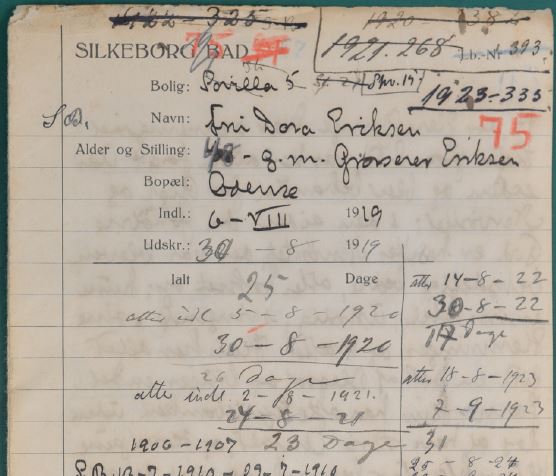 1922 - 325
1920 - 138
SILKEBORG BAD
75
1921. 268
J.b.-Nr 393
Bolig: Povilla 5
1923-335
S.B.
Navn: Fru Dora Eriksen
75
Alder og Stilling: 48 - g. m. Grosserer Eriksen
Bopæl: Odense
Indl.: 6 - VIII 1919
Udskr.: 30 - 8 1919
Ialt 25 Dage
atter indl 5 - 8 - 1920
30 - 8 - 1920
26 Dage
atter indl. 2 - 8 - 1921.
24 - 8 - 21
1906 - 1907 23 Dage
S.B. 13-7-1910 - 29-7-1910
atter 14-8-22
30-8-22
17 Dage
atter 18-8-1923
7-9-1923